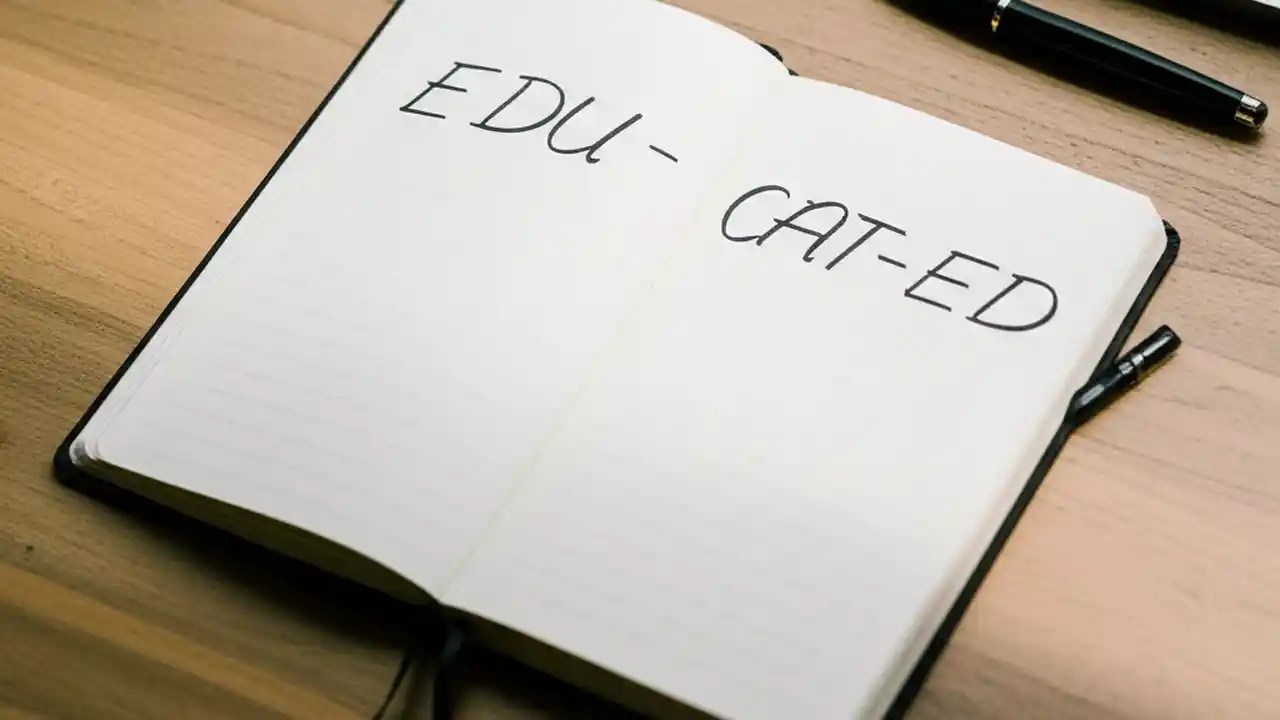 EDU-
CAT-ED